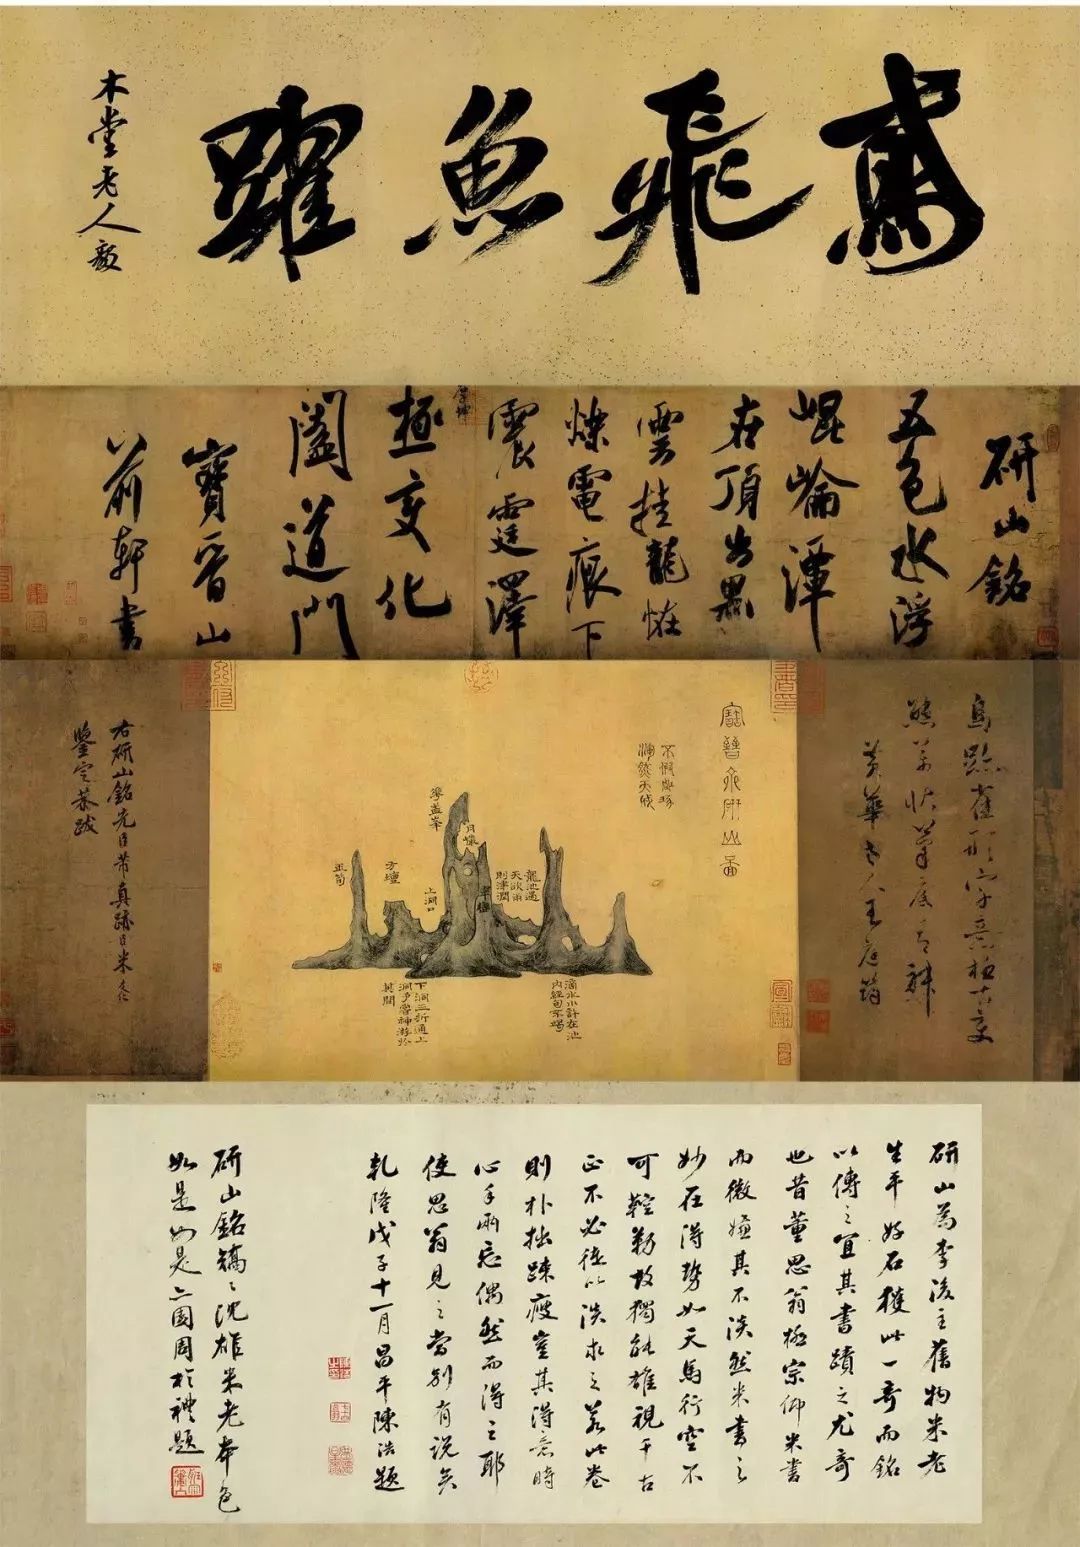 鳶飛魚躍
木堂老人毅
研山銘
五色水浮
崐崘潭
在頂出黑
雲挂龍恠
爍電痕下
震霆澤
厚坤
極變化
闔道門
寶晉山
前軒書
鳥跡雀形字意極古變
態萬狀筆底有神
黃華老人王庭筠
寶晉齋研山圖
不假雕琢
渾然天成
龍池遇
天欲雨
則津潤
月巖
翠巒
華蓋峯
上洞口
方壇
玉筍
滴水小許在池
内經旬不竭
下洞三折通上
洞予嘗神遊於
其間
右研山銘先臣芾真跡臣米友仁
鑒定恭跋
研山為李後主舊物米老
生平好石獲此一奇而銘
以傳之宜其書蹟之尤奇
也昔董思翁極宗仰米書
而微嫌其不淡然米書之
妙在得勢如天馬行空不
可鞚勒故獨能雄視千古
正不必徒以淡求之若此卷
則朴拙疎瘦豈其得意時
心手兩忘偶然而得之耶
使思翁見之當別有說矣
乾隆戊子十一月昌平陳浩題
研山銘矯〻沈雄米老本色
如是如是亦園周於禮題